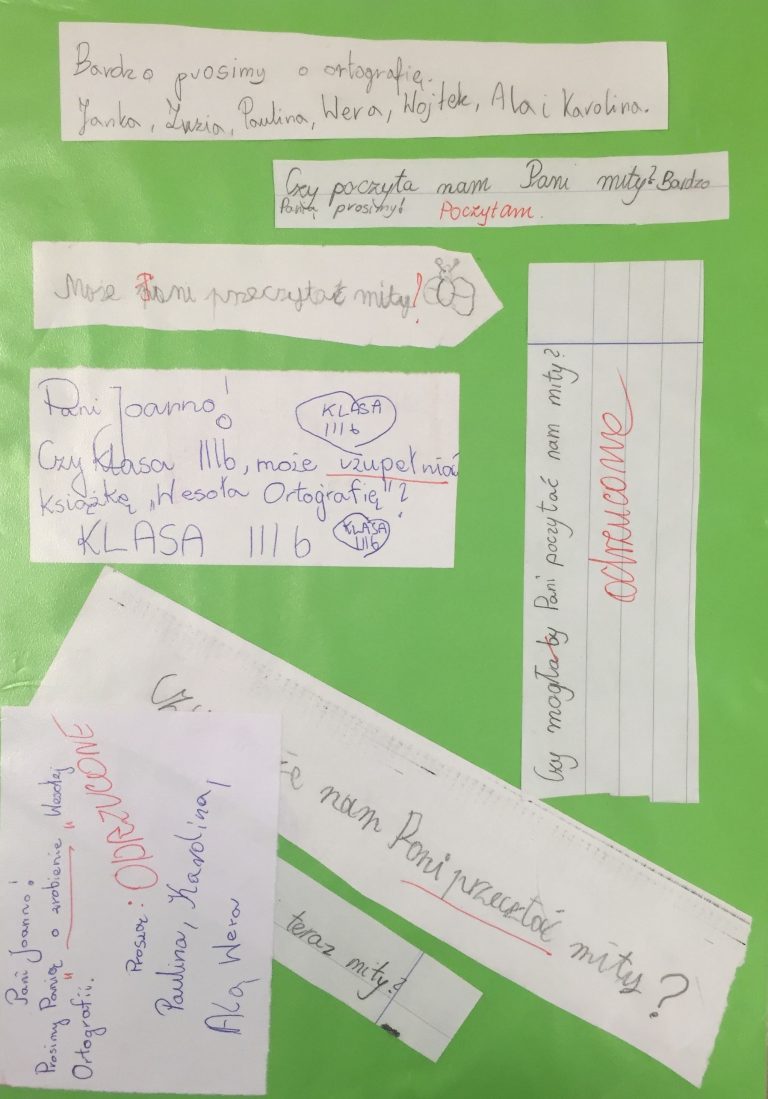 Bardzo prosimy o ortografię.
Janka, Zuzia, Paulina, Wera, Wojtek, Ala i Karolina.
Czy poczyta nam Pani mity? Bardzo
Panią prosimy! Poczytam.
Może Pani przeczytać mity!
Pani Joanno!
KLASA
III b
Czy klasa IIIb, może uzupełniać
książkę „Wesoła Ortografię"?
KLASA III b
KLASA
III b
Czy mogłaby Pani poczytać nam mity?
odrzucone
nam Pani przecztać mity?
teraz mity?
Pani Joanno!
Prosimy Panią o zrobienie Wesołej
Ortografii.
ODRZUCONE
Proszą:
Paulina, Karolina,
Alą Wera